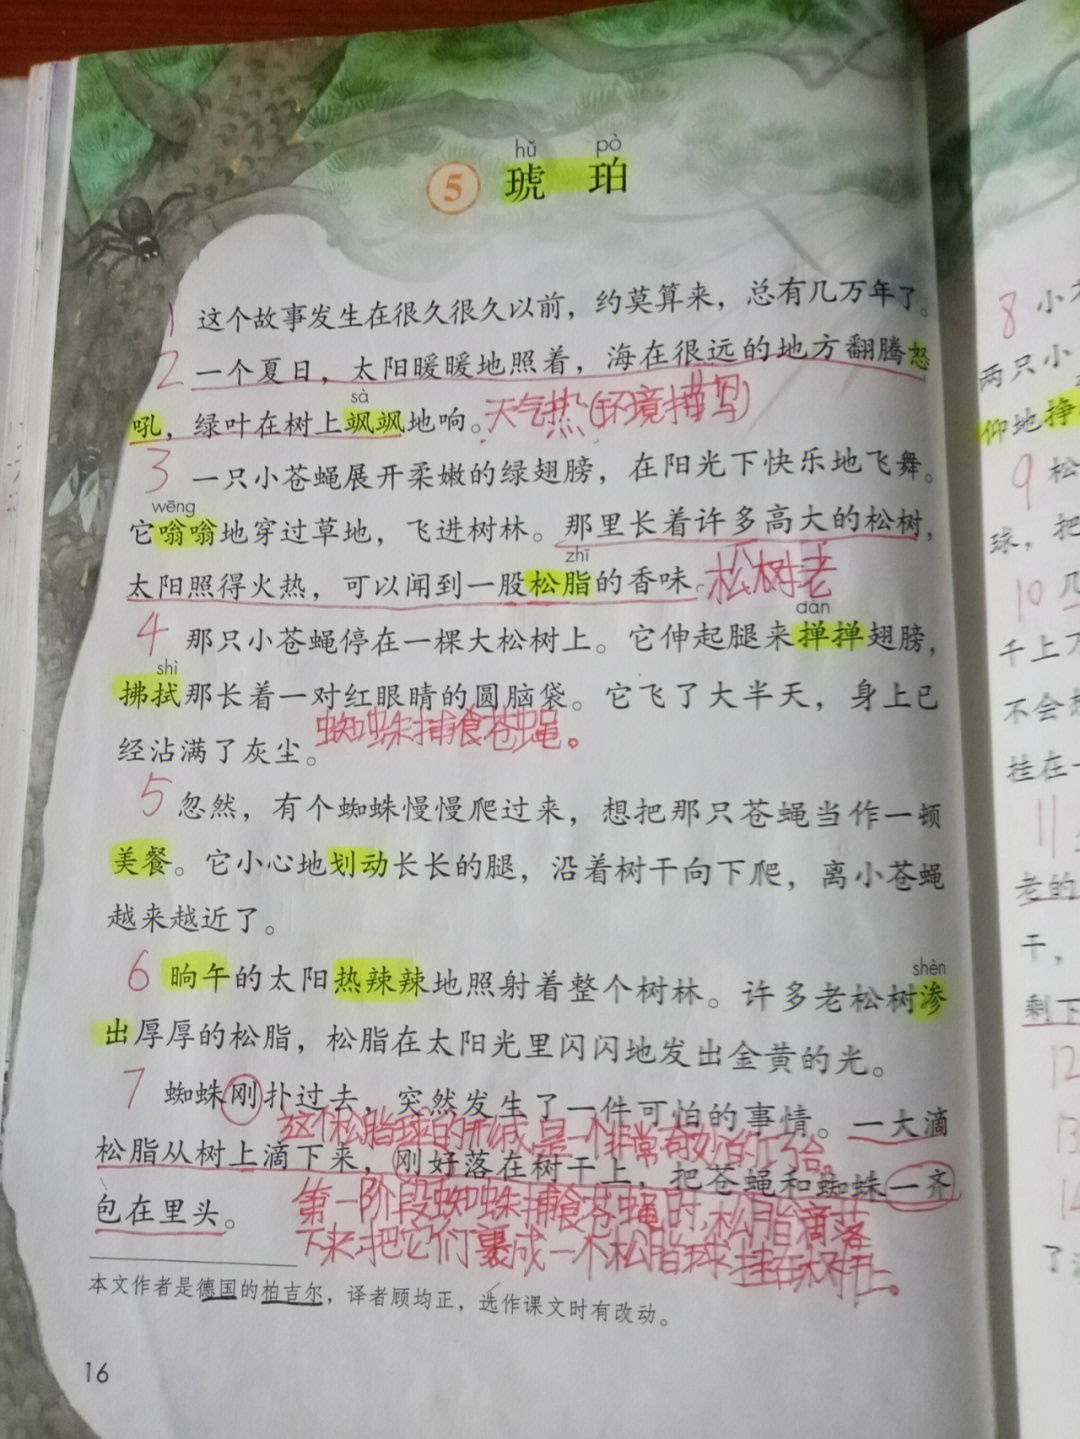 hǔ pò
5 琥珀
1 这个故事发生在很久很久以前，约莫算来，总有几万年了。
2 一个夏日，太阳暖暖地照着，海在很远的地方翻腾怒
sà
吼，绿叶在树上飒飒地响。天气热(环境描写)
3 一只小苍蝇展开柔嫩的绿翅膀，在阳光下快乐地飞舞。
wēng
它嗡嗡地穿过草地，飞进树林。那里长着许多高大的松树，
zhī
太阳照得火热，可以闻到一股松脂的香味。松树老
dǎn
4 那只小苍蝇停在一棵大松树上。它伸起腿来掸掸翅膀，
shì
拂拭那长着一对红眼睛的圆脑袋。它飞了大半天，身上已
蜘蛛捕食苍蝇。
经沾满了灰尘。
5 忽然，有个蜘蛛慢慢爬过来，想把那只苍蝇当作一顿
美餐。它小心地划动长长的腿，沿着树干向下爬，离小苍蝇
越来越近了。
6 晌午的太阳热辣辣地照射着整个树林。许多老松树渗
shèn
出厚厚的松脂，松脂在太阳光里闪闪地发出金黄的光。
7 蜘蛛刚扑过去，突然发生了一件可怕的事情。一大滴
这个松脂球的形成，是一个非常奇妙的巧合。
松脂从树上滴下来，刚好落在树干上，把苍蝇和蜘蛛一齐
第一阶段蜘蛛捕食苍蝇时，松脂滴落
包在里头。
下来，把它们裹成一个松脂球挂在树上。
本文作者是德国的柏吉尔，译者顾均正，选作课文时有改动。
16
8 小
两只小
仰地挣
9 松
球，把
10 几
千上万
不会
挂在一
11
老的
干，
剩下
12
13
14
了